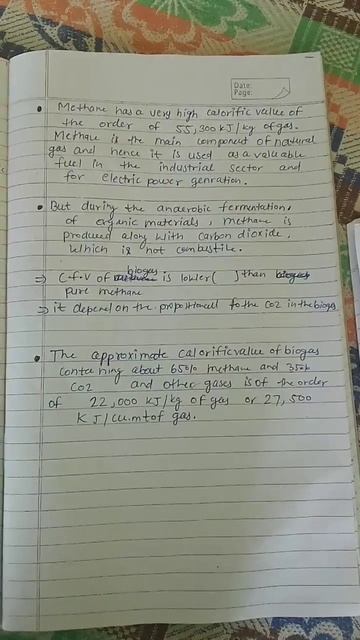 Date:
Page:
• Methane has a very high calorific value of
the order of 55,300 kJ/kg of gas.
Methane is the main component of natural
gas and hence it is used as a valuable
fuel in the industrial sector and
for electric power genration.
• But during the anaerobic fermentation
of organic materials, methane is
produced along with Carbon dioxide,
which is not combustile.
biogas
⇒ C.f.V of is lower ( ) than
pure methane
⇒ it depend on the to the CO2 in the biogas
• The approximate Calorific value of biogas
containing about 65% methane and 35%
CO2 and other gases is of the order
of 22,000 KJ/kg of gas or 27,500
KJ/cu.mt of gas.